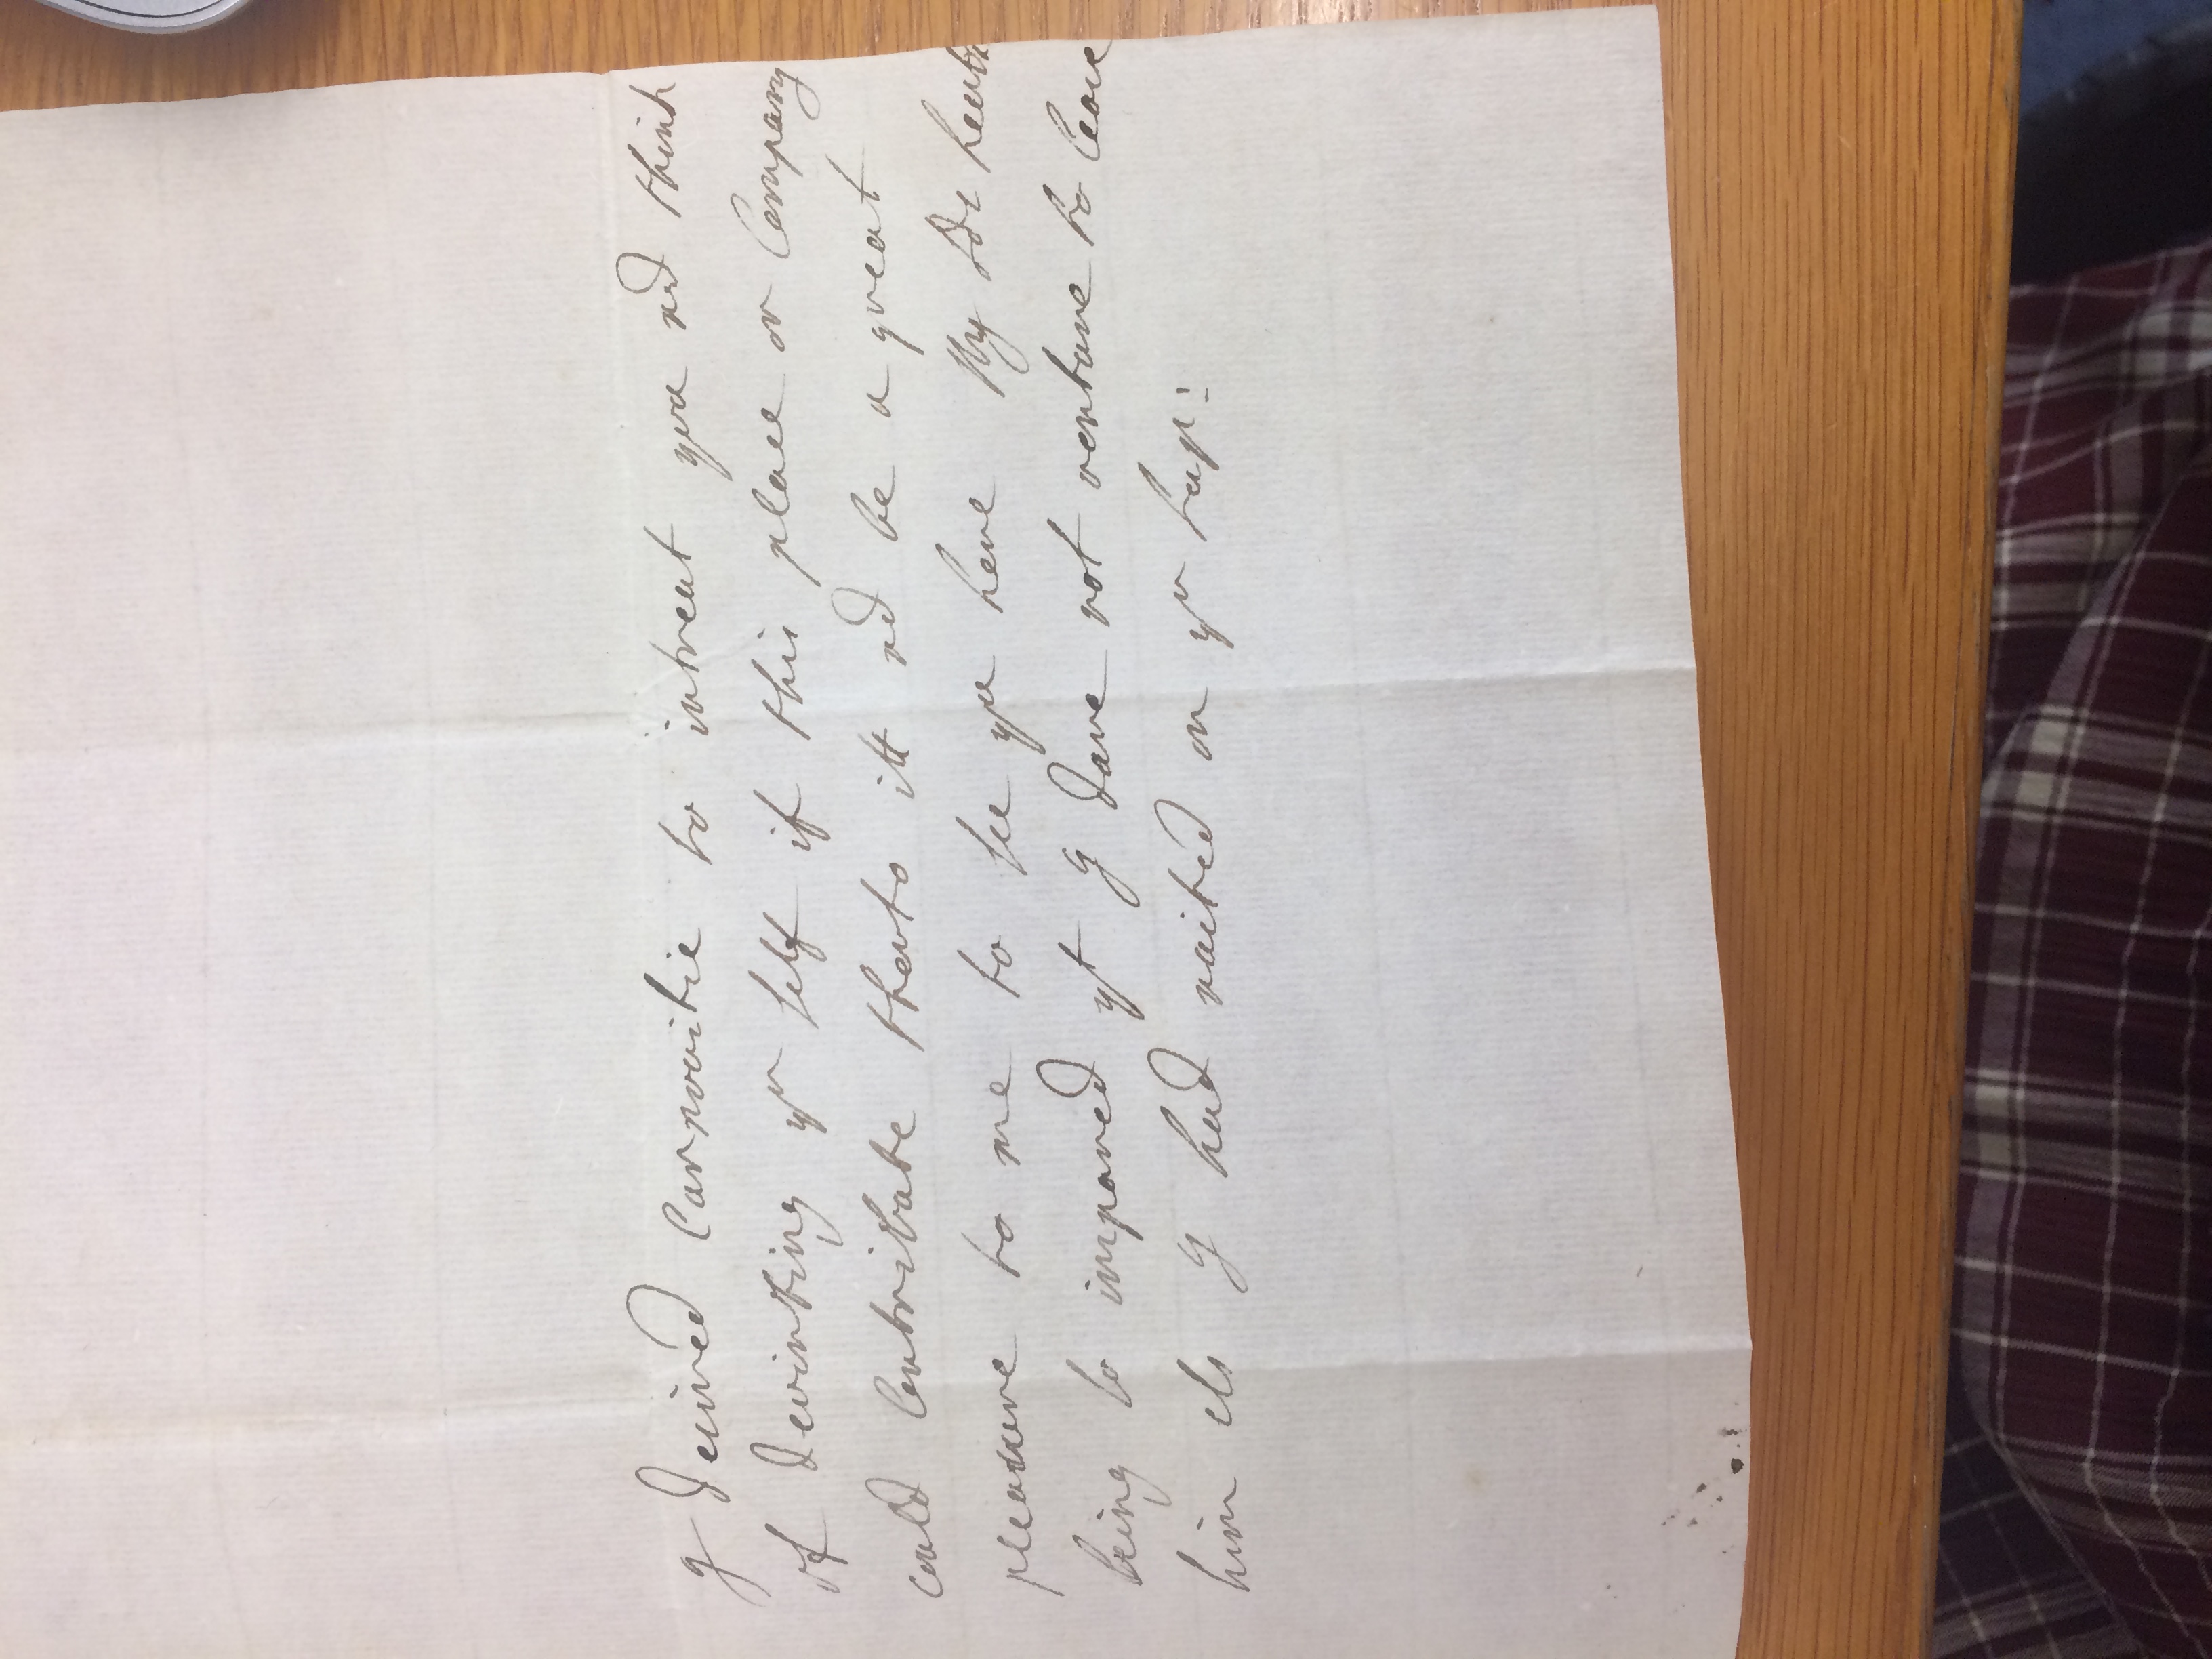 I desired Carnwaithie to intreat you wd think
of deverting yr self if this place or Company
could Contribute therto itt wd be a great
pleasure to me to see yu here My Lds health
being so impared yt I dare not venture to leave
him els I had waited on yr